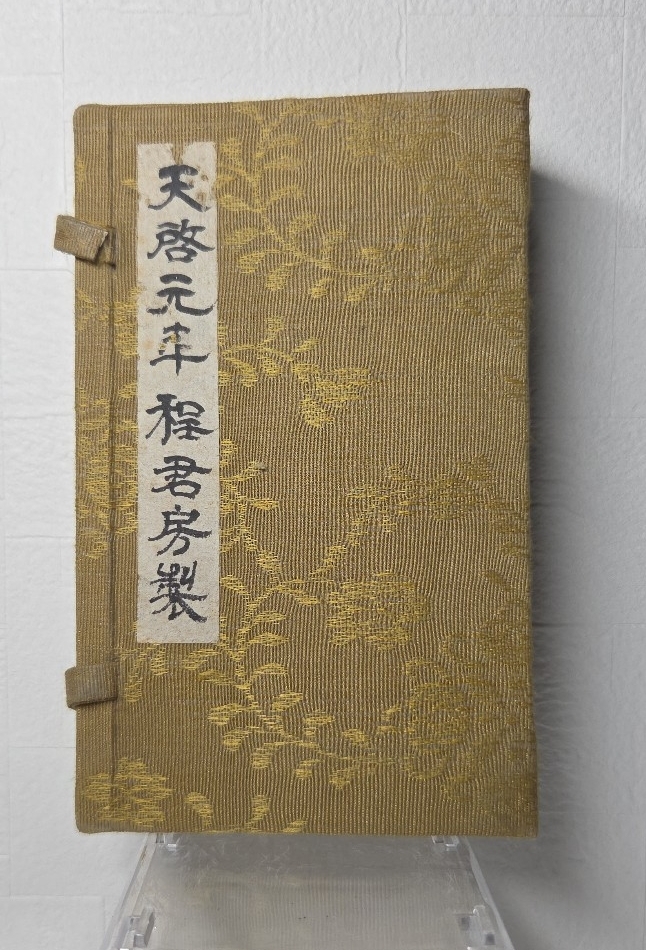 天啓元年程君房製